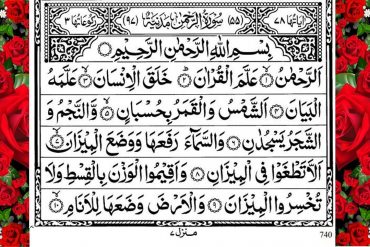 اٰیَاتُهَا ۷۸ (۵۵) سُوْرَةُ الرَّحْمٰنِ مَدَنِیَّةٌ (۹۷) رُكُوْعَاتُهَا ۳
بِسْمِ اللّٰهِ الرَّحْمٰنِ الرَّحِیْمِ
اَلرَّحْمٰنُ ۱ عَلَّمَ الْقُرْاٰنَ ۲ خَلَقَ الْاِنْسَانَ ۳ عَلَّمَهُ
الْبَیَانَ ۴ اَلشَّمْسُ وَالْقَمَرُ بِحُسْبَانٍ ۵ وَّالنَّجْمُ وَ
الشَّجَرُ یَسْجُدٰنِ ۶ وَالسَّمَآءَ رَفَعَهَا وَوَضَعَ الْمِیْزَانَ ۷
اَلَّا تَطْغَوْا فِی الْمِیْزَانِ ۸ وَاَقِیْمُوا الْوَزْنَ بِالْقِسْطِ وَلَا
تُخْسِرُوا الْمِیْزَانَ ۹ وَالْاَرْضَ وَضَعَهَا لِلْاَنَامِ ۱۰
منزل ۷
740